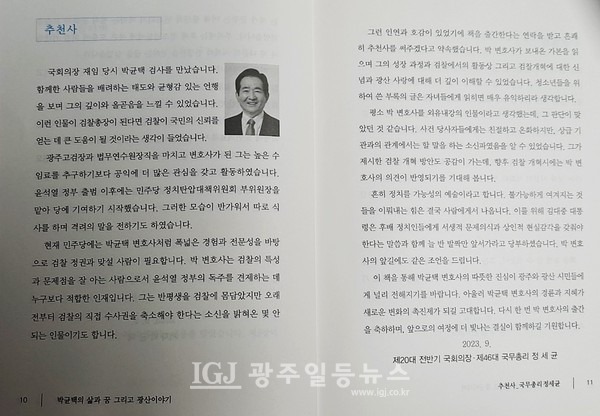 추천사
국회의장 재임 당시 박균택 검사를 만났습니다.
함께한 사람들을 배려하는 태도와 균형감 있는 언행
을 보며 그의 깊이와 올곧음을 느낄 수 있었습니다.
이런 인물이 검찰총장이 된다면 검찰이 국민의 신뢰를
얻는 데 큰 도움이 될 것이라는 생각이 들었습니다.
광주고검장과 법무연수원장직을 마치고 변호사가 된 그는 높은 수
임료를 추구하기보다 공익에 더 많은 관심을 갖고 활동하였습니다.
윤석열 정부 출범 이후에는 민주당 정치탄압대책위원회 부위원장을
맡아 당에 기여하기 시작했습니다. 그러한 모습이 반가워서 따로 식
사를 하며 격려의 말을 전하기도 하였습니다.
현재 민주당에는 박균택 변호사처럼 폭넓은 경험과 전문성을 바탕
으로 검찰 정권과 맞설 사람이 필요합니다. 박 변호사는 검찰의 특성
과 문제점을 잘 아는 사람으로서 윤석열 정부의 독주를 견제하는 데
누구보다 적합한 인재입니다. 그는 반평생을 검찰에 몸담았지만 오래
전부터 검찰의 직접 수사권을 축소해야 한다는 소신을 밝혀온 몇 안
되는 인물이기도 합니다.
10 박균택의 삶과 꿈 그리고 광산이야기
그런 인연과 호감이 있었기에 책을 출간한다는 연락을 받고 흔쾌
히 추천사를 써주겠다고 약속했습니다. 박 변호사가 보내온 가본을 읽
으며 그의 성장 과정과 검찰에서의 활동상 그리고 검찰개혁에 대한 신
념과 광산 사랑에 대해 더 깊이 이해할 수 있었습니다. 청소년들을 위
하여 쓴 부록의 글은 자녀들에게 읽히면 매우 유익하리라 생각합니다.
평소 박 변호사를 외유내강의 인물이라고 생각했는데, 그 판단이 맞
았던 것 같습니다. 사건 당사자들에게는 친절하고 온화하지만, 상급 기
관과의 관계에서는 할 말을 하는 소신파였음을 알 수 있었습니다. 그가
제시한 검찰 개혁 방안도 공감이 가는데, 향후 검찰 개혁시에는 박 변
호사의 의견이 반영되기를 기대해 봅니다.
흔히 정치를 가능성의 예술이라고 합니다. 불가능하게 여겨지는 것
들을 이뤄내는 힘은 결국 사람에게서 나옵니다. 이를 위해 김대중 대통
령은 후배 정치인들에게 서생적 문제의식과 상인적 현실감각을 갖춰야
한다는 말씀과 함께 늘 반 발짝만 앞서가라고 당부하였습니다. 박 변호
사의 앞길에도 같은 조언을 드립니다.
이 책을 통해 박균택 변호사의 따뜻한 진심이 광주와 광산 시민들에
게 널리 전해지기를 바랍니다. 아울러 박균택 변호사의 경륜과 지혜가
새로운 변화의 촉진제가 되길 고대합니다. 다시 한 번 박 변호사의 출간
을 축하하며, 앞으로의 여정에 더 빛나는 결실이 함께하길 기원합니다.
2023. 9.
제20대 전반기 국회의장 · 제46대 국무총리 정 세 균
추천사_국무총리 정세균 11
IGJ 광주일등뉴스
www.igj.co.kr